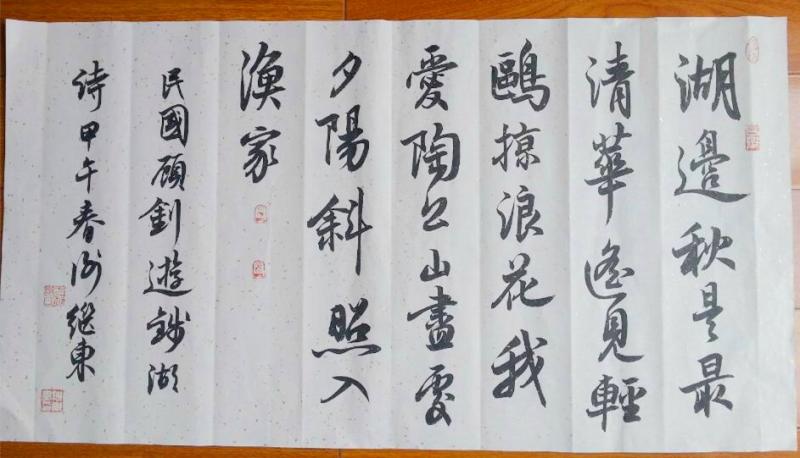 湖邊秋是最
清華遙見輕
鷗掠浪花我
愛陶公山盡處
夕陽斜照入
漁家
民國顧釗遊錢湖
詩甲午春繼東